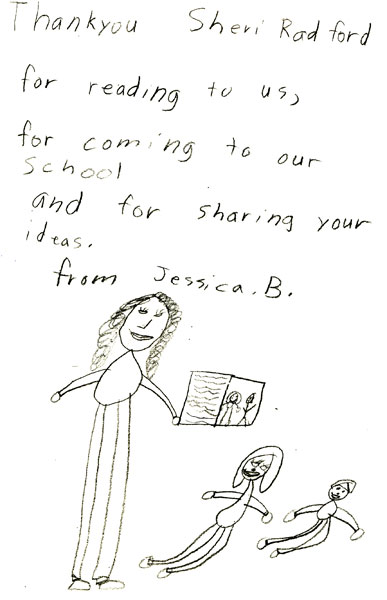 Thankyou Sheri Radford
for reading to us,
for coming to our
School
and for sharing your
ideas.
from Jessica.B.